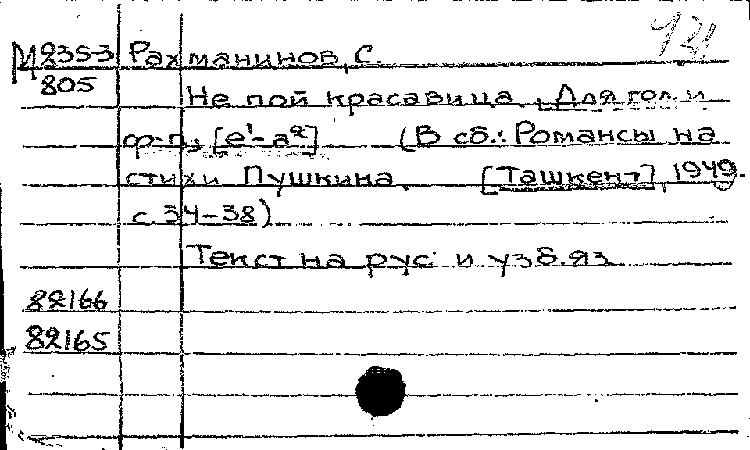 М 235-3 Рахманинов, С.
805 Не пой красавица. Для гол. и
ф-п. [e¹-a²] (В сб.: Романсы на
стихи Пушкина. [Ташкент], 1949.
с. 34-38).
Текст на рус. и узб. яз.
82166
82165